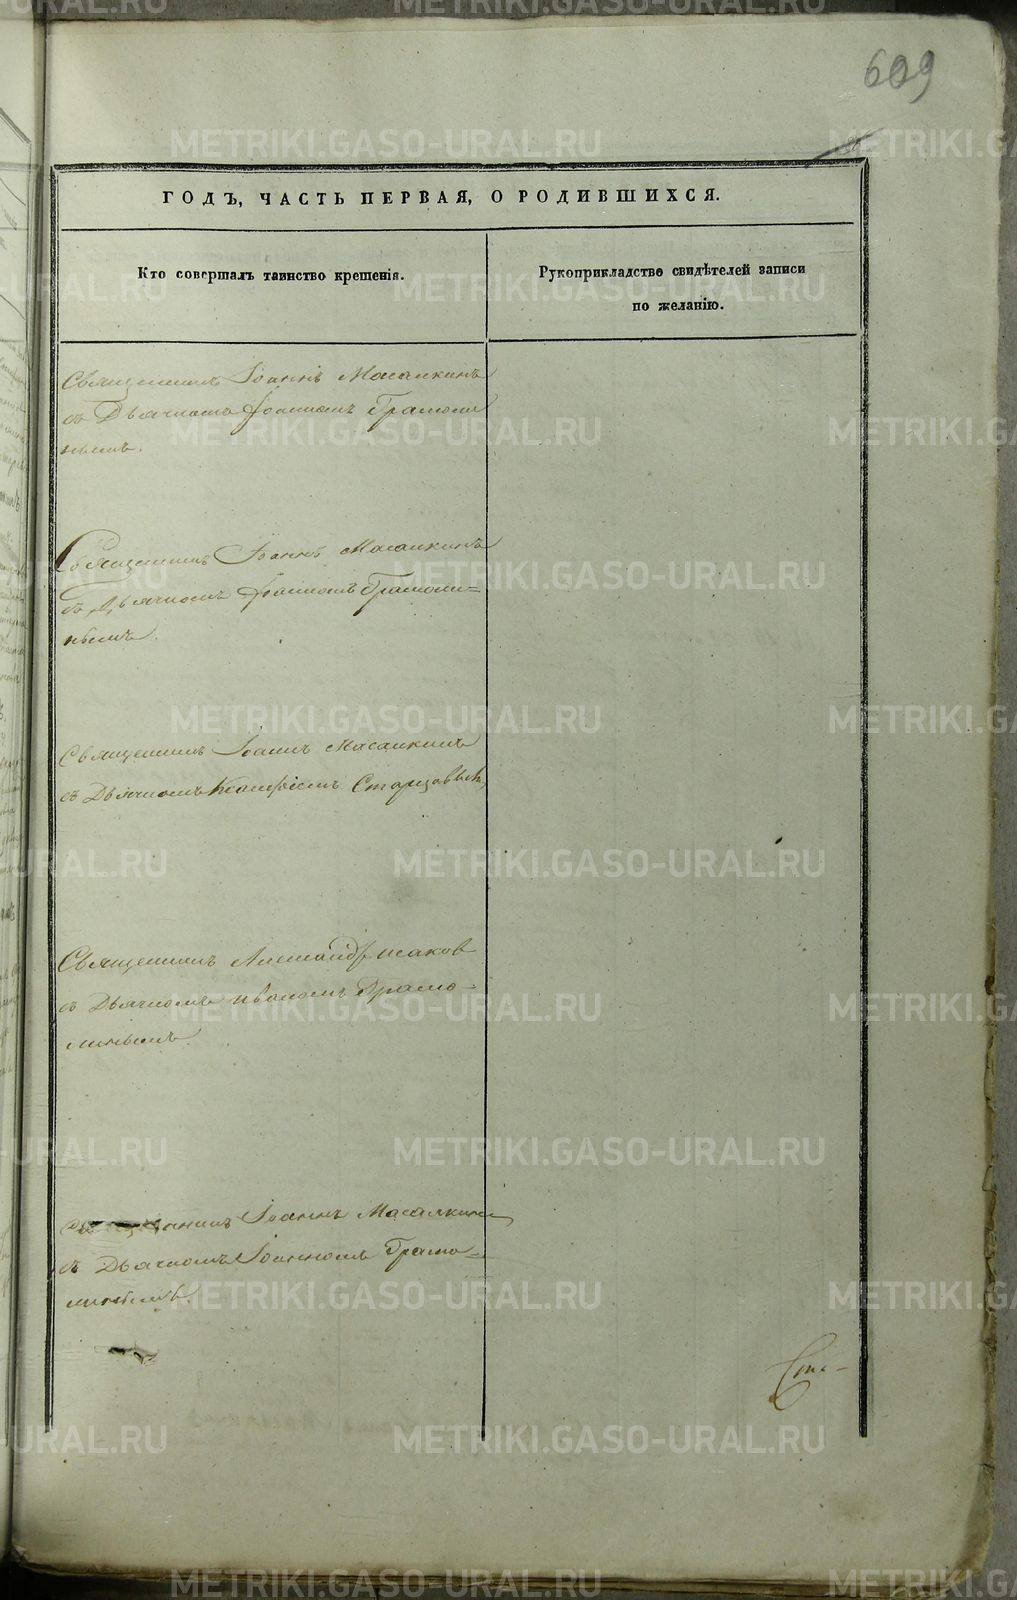 609
ГОДЪ, ЧАСТЬ ПЕРВАЯ, О РОДИВШИХСЯ.
Кто совершалъ таинство крещенія.
Рукоприкладство свидѣтелей записи
по желанію.
Священникъ Іоаннъ Масалкинъ
съ Дьячкомъ Іоанномъ Грамоли
нымъ.
Священникъ Іоаннъ Масалкинъ
съ Дьячкомъ Іоанномъ Грамоли=
нымъ.
Священникъ Іоаннъ Масалкинъ
съ Дьячкомъ Старцовымъ
Священникъ Александр Исаков
съ Дьячкомъ Иваномъ Грамо-
линымъ.
Іоаннъ Масалкинъ
съ Дьячкомъ Іоанномъ Грамо=
линымъ.
METRIKI.GASO-URAL.RU